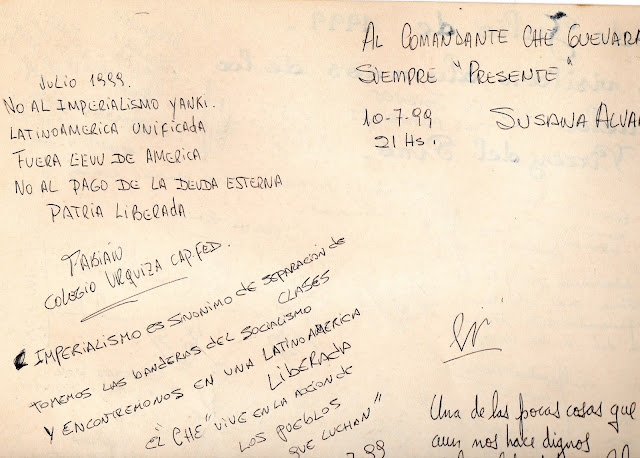 JULIO 1999.
NO AL IMPERIALISMO YANKI.
LATINOAMERICA UNIFICADA
FUERA EEUU DE AMERICA
NO AL PAGO DE LA DEUDA ESTERNA
PATRIA LIBERADA
FABIAN
COLEGIO URQUIZA CAP. FED.
IMPERIALISMO ES SINONIMO DE SEPARACION DE
CLASES
TOMEMOS LAS BANDERAS DEL SOCIALISMO
Y ENCONTREMONOS EN UNA LATINOAMERICA
LIBERADA
EL "CHE" VIVE EN LA ACCION DE
LOS PUEBLOS
QUE LUCHAN"
AL COMANDANTE CHE GUEVARA
SIEMPRE "PRESENTE"
10-7-99 SUSANA ALVA
21 Hs.
Una de las pocas cosas que
aun nos hace dignos